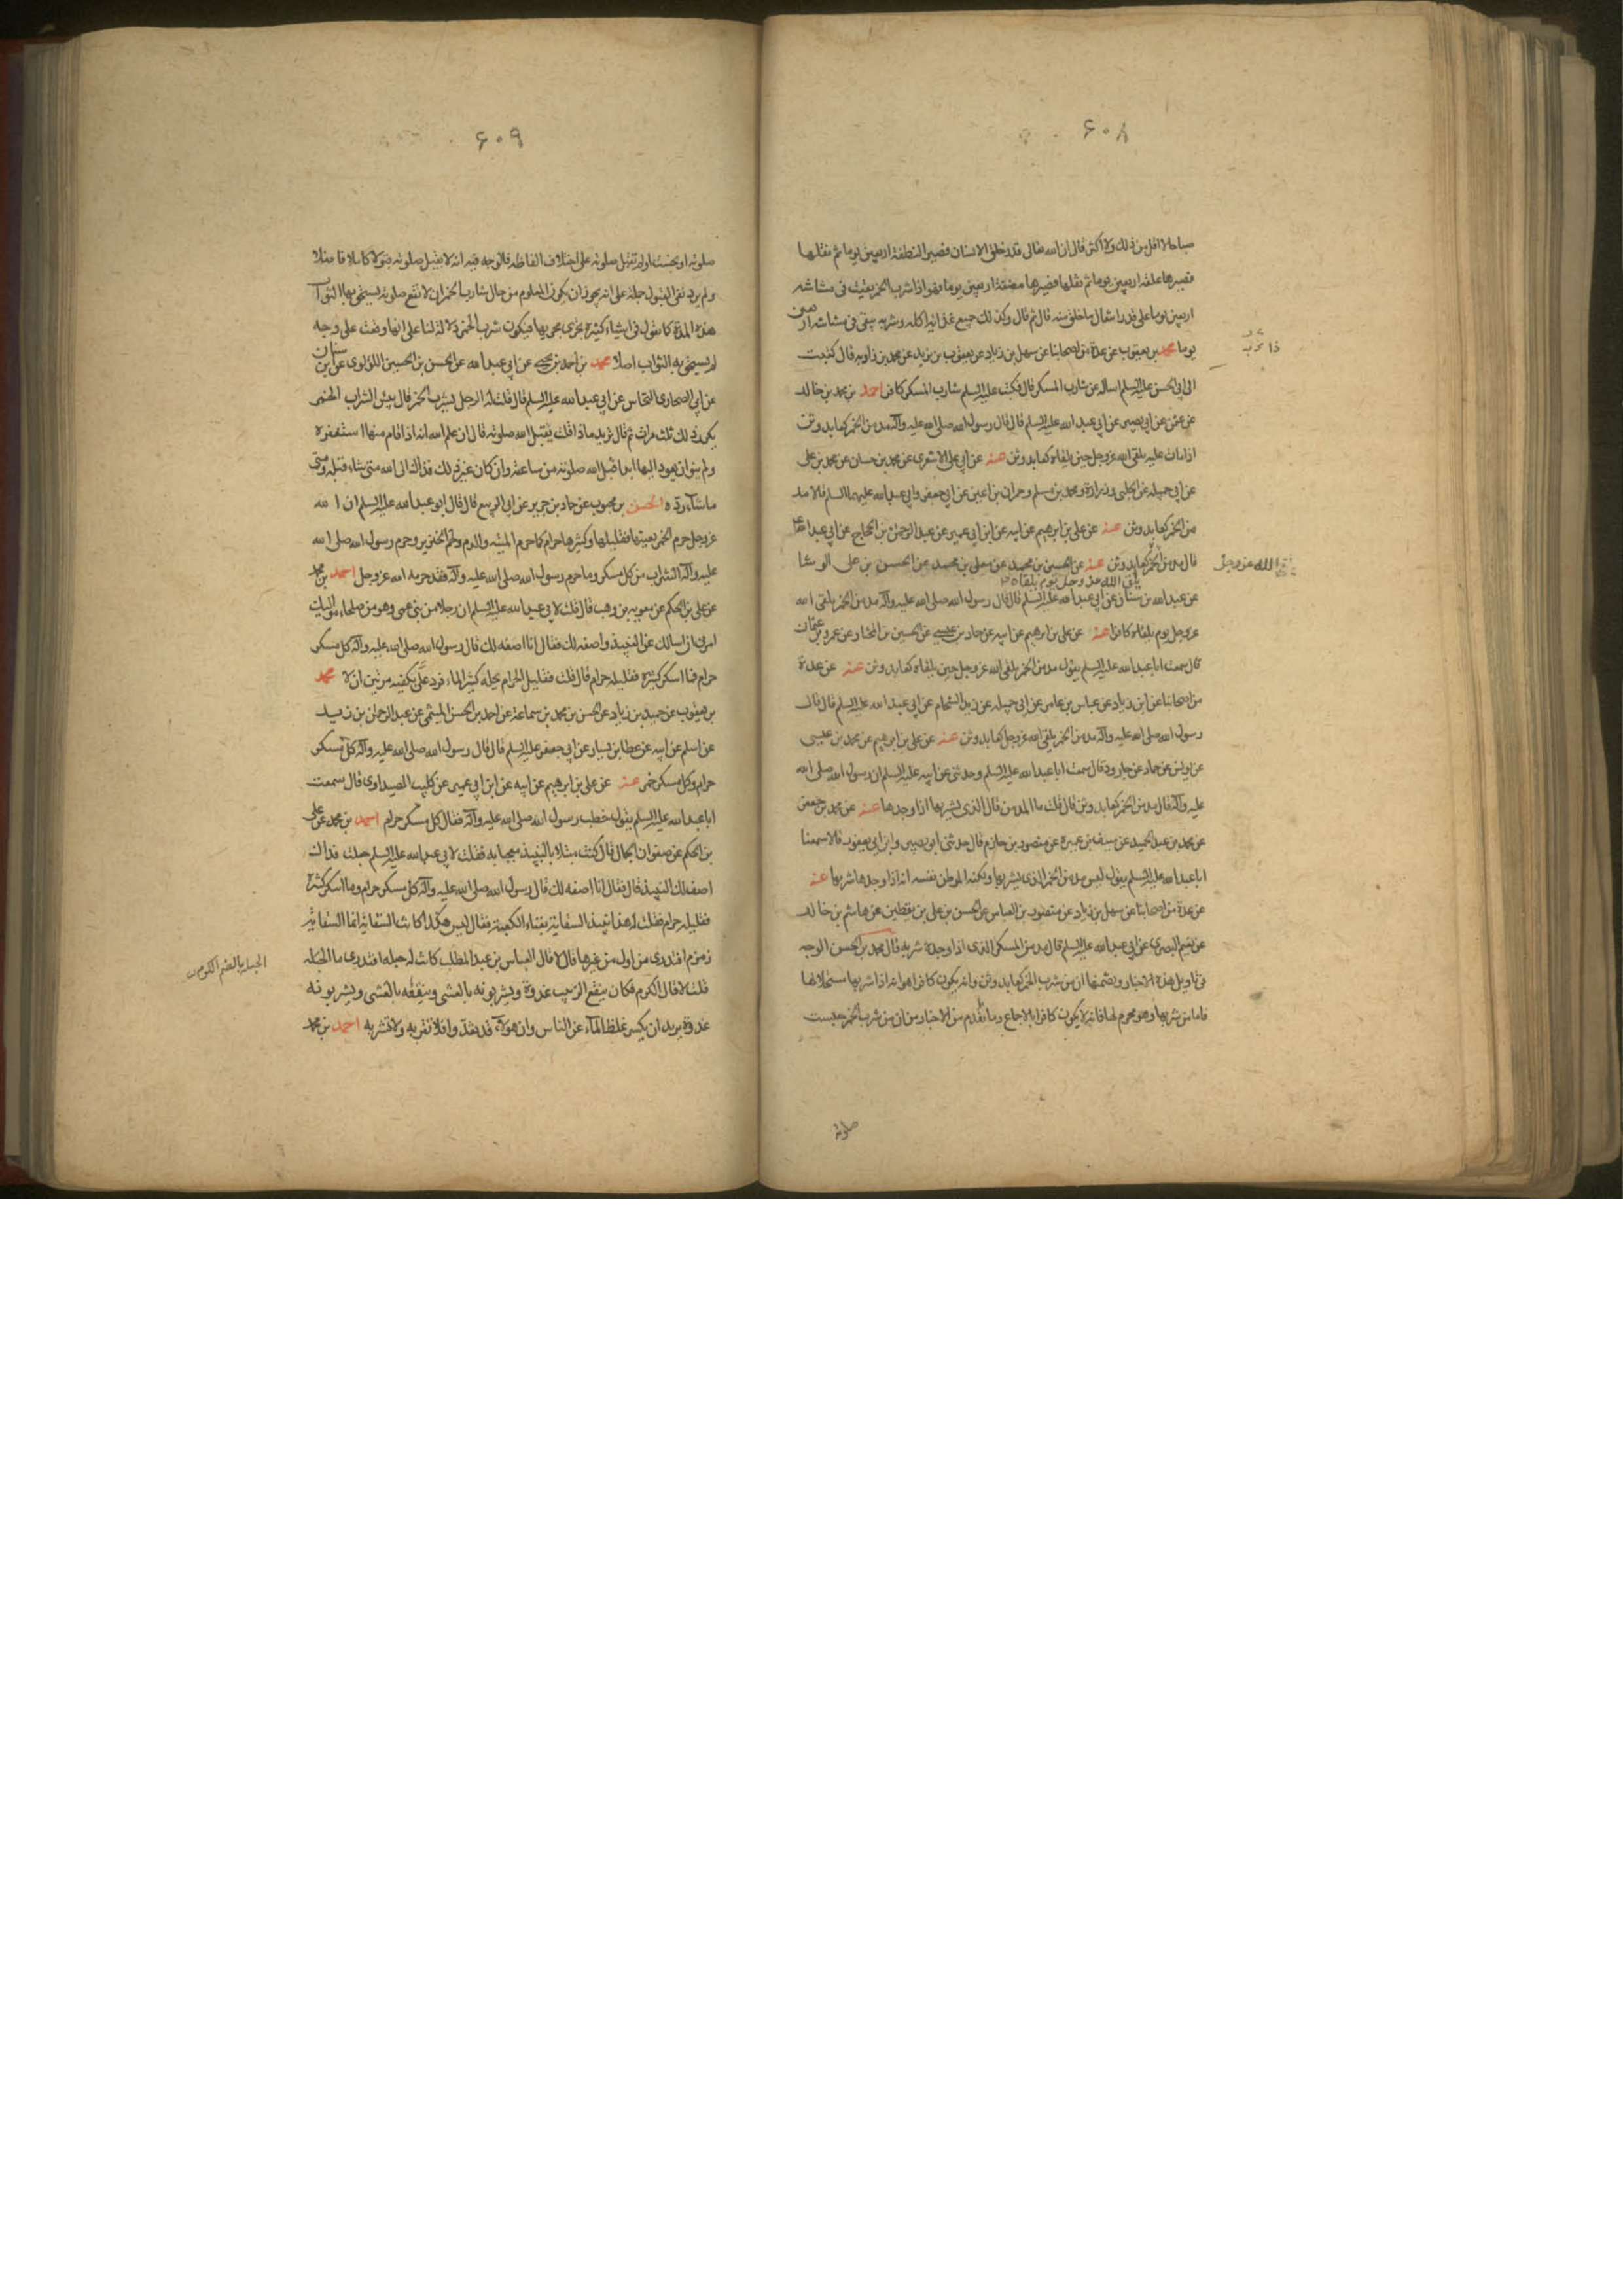 ۶۰۸
صباحا لا اقل من ذلك ولا اكثر قال ان الله تعالى قدر خلق الانسان فصير النطفة اربعين يوما ثم نقلها
فصيرها علقة اربعين يوما ثم نقلها فصيرها مضغة اربعين يوما فهو اذا شرب الخمر بقيت فى مشاشه
اربعين يوما على قدر انتقال ما خلق منه قال ثم قال وكذلك جميع غذائه اكله وشربه يبقى فى مشاشه اربعين
يوما محمد بن يعقوب عن عدة من اصحابنا عن سهل بن زياد عن يعقوب بن يزيد عن محمد بن زاويه قال كتبت
الى ابى الحسن عليه السلم اساله عن شارب المسكر قال فكتب عليه السلم شارب المسكر كافر احمد بن محمد بن خالد
عن عثمن عن ابى بصير عن ابى عبد الله عليه السلم قال قال رسول الله صلى الله عليه وآله مدمن الخمر كعابد وثن
اذا مات عليه يلقى الله عز وجل حين يلقاه كعابد وثن عنه عن ابى على الاشعرى عن محمد بن حسان عن محمد بن على
عن ابى جميله عن الحلبى وزرارة ومحمد بن مسلم وحمران بن اعين عن ابى جعفر وابى عبد الله عليهما السلم قالا مد
من الخمر كعابد وثن عنه عن على بن ابرهيم عن ابيه عن ابن ابى عمير عن عبد الرحمن بن الحجاج عن ابى عبد الله
قال مدمن الخمر كعابد وثن عنه عن الحسين بن محمد عن معلى بن محمد عن الحسن بن على الوشا
يلقى الله عز وجل يوم يلقاه
يلقى الله عز وجل
عن عبد الله بن سنان عن ابى عبد الله عليه السلم قال قال رسول الله صلى الله عليه وآله مدمن الخمر يلقى الله
عز وجل يوم يلقاه كافرا عنه عن على بن ابرهيم عن ابيه عن حماد بن عيسى عن الحسين بن المختار عن عمرو بن عثمان
قال سمعت ابا عبد الله عليه السلم يقول مدمن الخمر يلقى الله عز وجل حين يلقاه كعابد وثن عنه عن عدة
من اصحابنا عن ابن زياد عن عباس بن عامر عن ابى جميله عن زيد الشحام عن ابى عبد الله عليه السلم قال قال
رسول الله صلى الله عليه وآله مدمن الخمر يلقى الله عز وجل كعابد وثن عنه عن على بن ابرهيم عن محمد بن عيسى
عن يونس عن حماد عن جارود قال سمعت ابا عبد الله عليه السلم وحدثنى عن ابيه عليه السلم ان رسول الله صلى الله
عليه وآله قال مدمن الخمر كعابد وثن قال قلت ما المدمن قال الذى يشربها اذا وجدها عنه عن محمد بن جعفر
عن محمد بن عبد الحميد عن سيف بن عميرة عن منصور بن حازم قال حدثنى ابو بصير وابن ابى يعفور قالا سمعنا
ابا عبد الله عليه السلم يقول ليس مدمن الخمر الذى يشربها ولكنه الموطن نفسه انه اذا وجدها شربها عنه
عن عدة من اصحابنا عن سهل بن زياد عن منصور بن العباس عن الحسن بن على بن يقطين عن هاشم بن خالد
عن نعيم البصرى عن ابى عبد الله عليه السلم قال مدمن المسكر الذى اذا وجده شربه قال محمد بن الحسن الوجه
فى تاويل هذه الاخبار وتضمنها ان من شرب الخمر كعابد وثن وانه يكون كافرا هو انه اذا شربها مستحلا لها
فاما من شربها وهو محرم لها فانه لا يكون كافرا بالاجماع وما تقدم من الاخبار من ان من شرب الخمر حبست
صلوته
۶۰۹
صلوته او بخست او لم تقبل صلوته على اختلاف الفاظه فالوجه فيه انه لا يقبل صلوته قبولا كاملا فاضلا
ولم يرد نفى القبول جملة على انه يجوز ان يكون المعلوم من حال شارب الخمر ان لا تقع صلوته يستحق بها الثواب
هذه المدة كما نقول فى اشياء كثيرة تجرى مجريها فيكون شرب الخمر دلالة لنا على انها وقعت على وجه
لم يستحق به الثواب اصلا محمد بن احمد بن يحيى عن ابى عبد الله عن الحسن بن الحسين اللؤلوى عن ابن سنان
عن ابى الصحارى النخاس عن ابى عبد الله عليه السلم قال قلت له الرجل يشرب الخمر قال بئس الشراب الخمر
يكرر ذلك ثلث مرات ثم قال تريد ماذا قلت يقبل الله صلوته قال ان علم الله انه اذا قام منها استغفره
ولم ينو ان يعود اليها ابدا قبل الله صلوته من ساعته وان كان غير ذلك فذاك الى الله متى يشاء قبله ومتى
ما شاء رده الحسن بن محبوب عن خالد بن جرير عن ابى الربيع قال قال ابو عبد الله عليه السلم ان الله
عز وجل حرم الخمر بعينها فقليلها وكثيرها حرام كما حرم الميته والدم ولحم الخنزير وحرم رسول الله صلى الله
عليه وآله الشراب من كل مسكر وما حرم رسول الله صلى الله عليه وآله فقد حرمه الله عز وجل احمد بن محمد
عن على بن الحكم عن معويه بن وهب قال قلت لابى عبد الله عليه السلم ان رجلا من بنى عمى وهو من صلحاء مواليك
امرنى ان اسالك عن النبيذ واصفه لك فقال انا اصفه لك قال رسول الله صلى الله عليه وآله كل مسكر
حرام فما اسكر كثيره فقليله حرام قال قلت فقليل الحرام يحله كثير الماء فرد على بكفيه مرتين ان لا محمد
بن يعقوب عن حميد بن زياد عن الحسن بن محمد بن سماعة عن احمد بن الحسن الميثمى عن عبد الرحمن بن زيد
عن اسلم عن ابيه عن عطا بن يسار عن ابى جعفر عليه السلم قال قال رسول الله صلى الله عليه وآله كل مسكر
حرام وكل مسكر خمر عنه عن على بن ابرهيم عن ابيه عن ابن ابى عمير عن كليب الصيداوى قال سمعت
ابا عبد الله عليه السلم يقول خطب رسول الله صلى الله عليه وآله فقال كل مسكر حرام احمد بن محمد عن على
بن الحكم عن صفوان الجمال قال كنت مبتلا بالنبيذ معجبا به فقلت لابى عبد الله عليه السلم جعلت فداك
اصف لك النبيذ قال فقال انا اصفه لك قال رسول الله صلى الله عليه وآله كل مسكر حرام وما اسكر كثيره
فقليله حرام فقلت له هذا نبيذ السقاية بفناء الكعبة فقال ليس هكذا كانت السقاية انما السقاية
زمزم افتدرى من اول من غيرها قال لا قال العباس بن عبد المطلب كانت له حبله افتدرى ما الحبله
الحبله بالضم الكرم
قلت لا قال الكرم فكان ينقع الزبيب غدوة ويشربونه بالعشى وينقعه بالعشى ويشربونه
غدوة يريد ان يكسر غلظ الماء عن الناس وان هؤلاء قد تعدوا فلا تقربه ولا تشربه احمد بن محمد